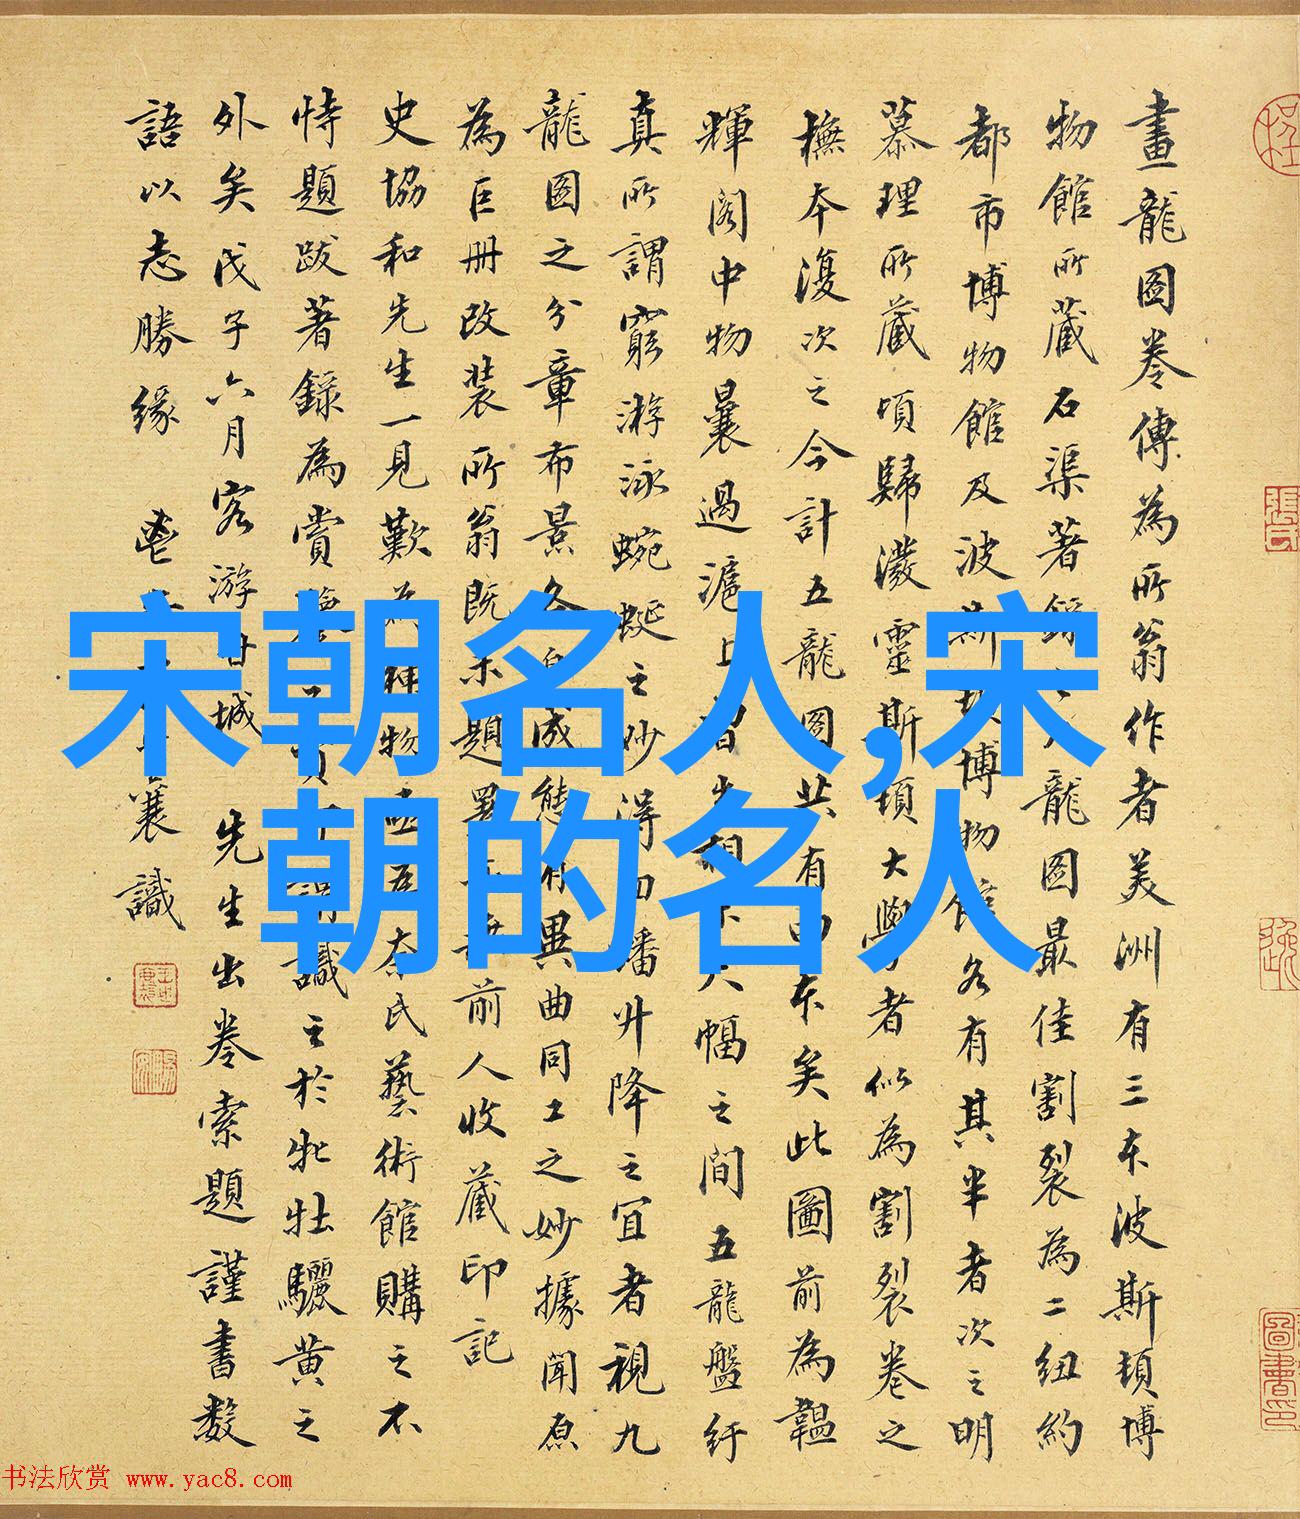 宋朝名人,宋
朝的名人
畫龍圖卷傳為所翁作者美洲有三本波斯頓博
物館所藏石渠著錄龍圖最佳割裂為二紐約
都市博物館及波斯頓博物館各有其半者次之明
慕理所藏頃歸潑靈斯頓大學者似為割裂卷之
橅本復次之今計五龍圖共有四本矣此圖前為韞
輝閣中物曩過滬上曾出大幅之間五龍盤紆
真所謂窮游泳蜿蜒之妙得回蟠升降之宜者視九
龍圖之分章布景各自成態有異曲同工之妙據聞原
為巨冊改裝所翁既未題署前人收藏印記
史協和先生一見歎為神物亟為奈氏藝術館購之不
恃題跋著錄為賞識之於牝牡驪黃之
外矣戊子六月客游甘城 先生出卷索題謹書數
語以志勝緣 襄識
張氏
书法欣赏 www.yac8.com